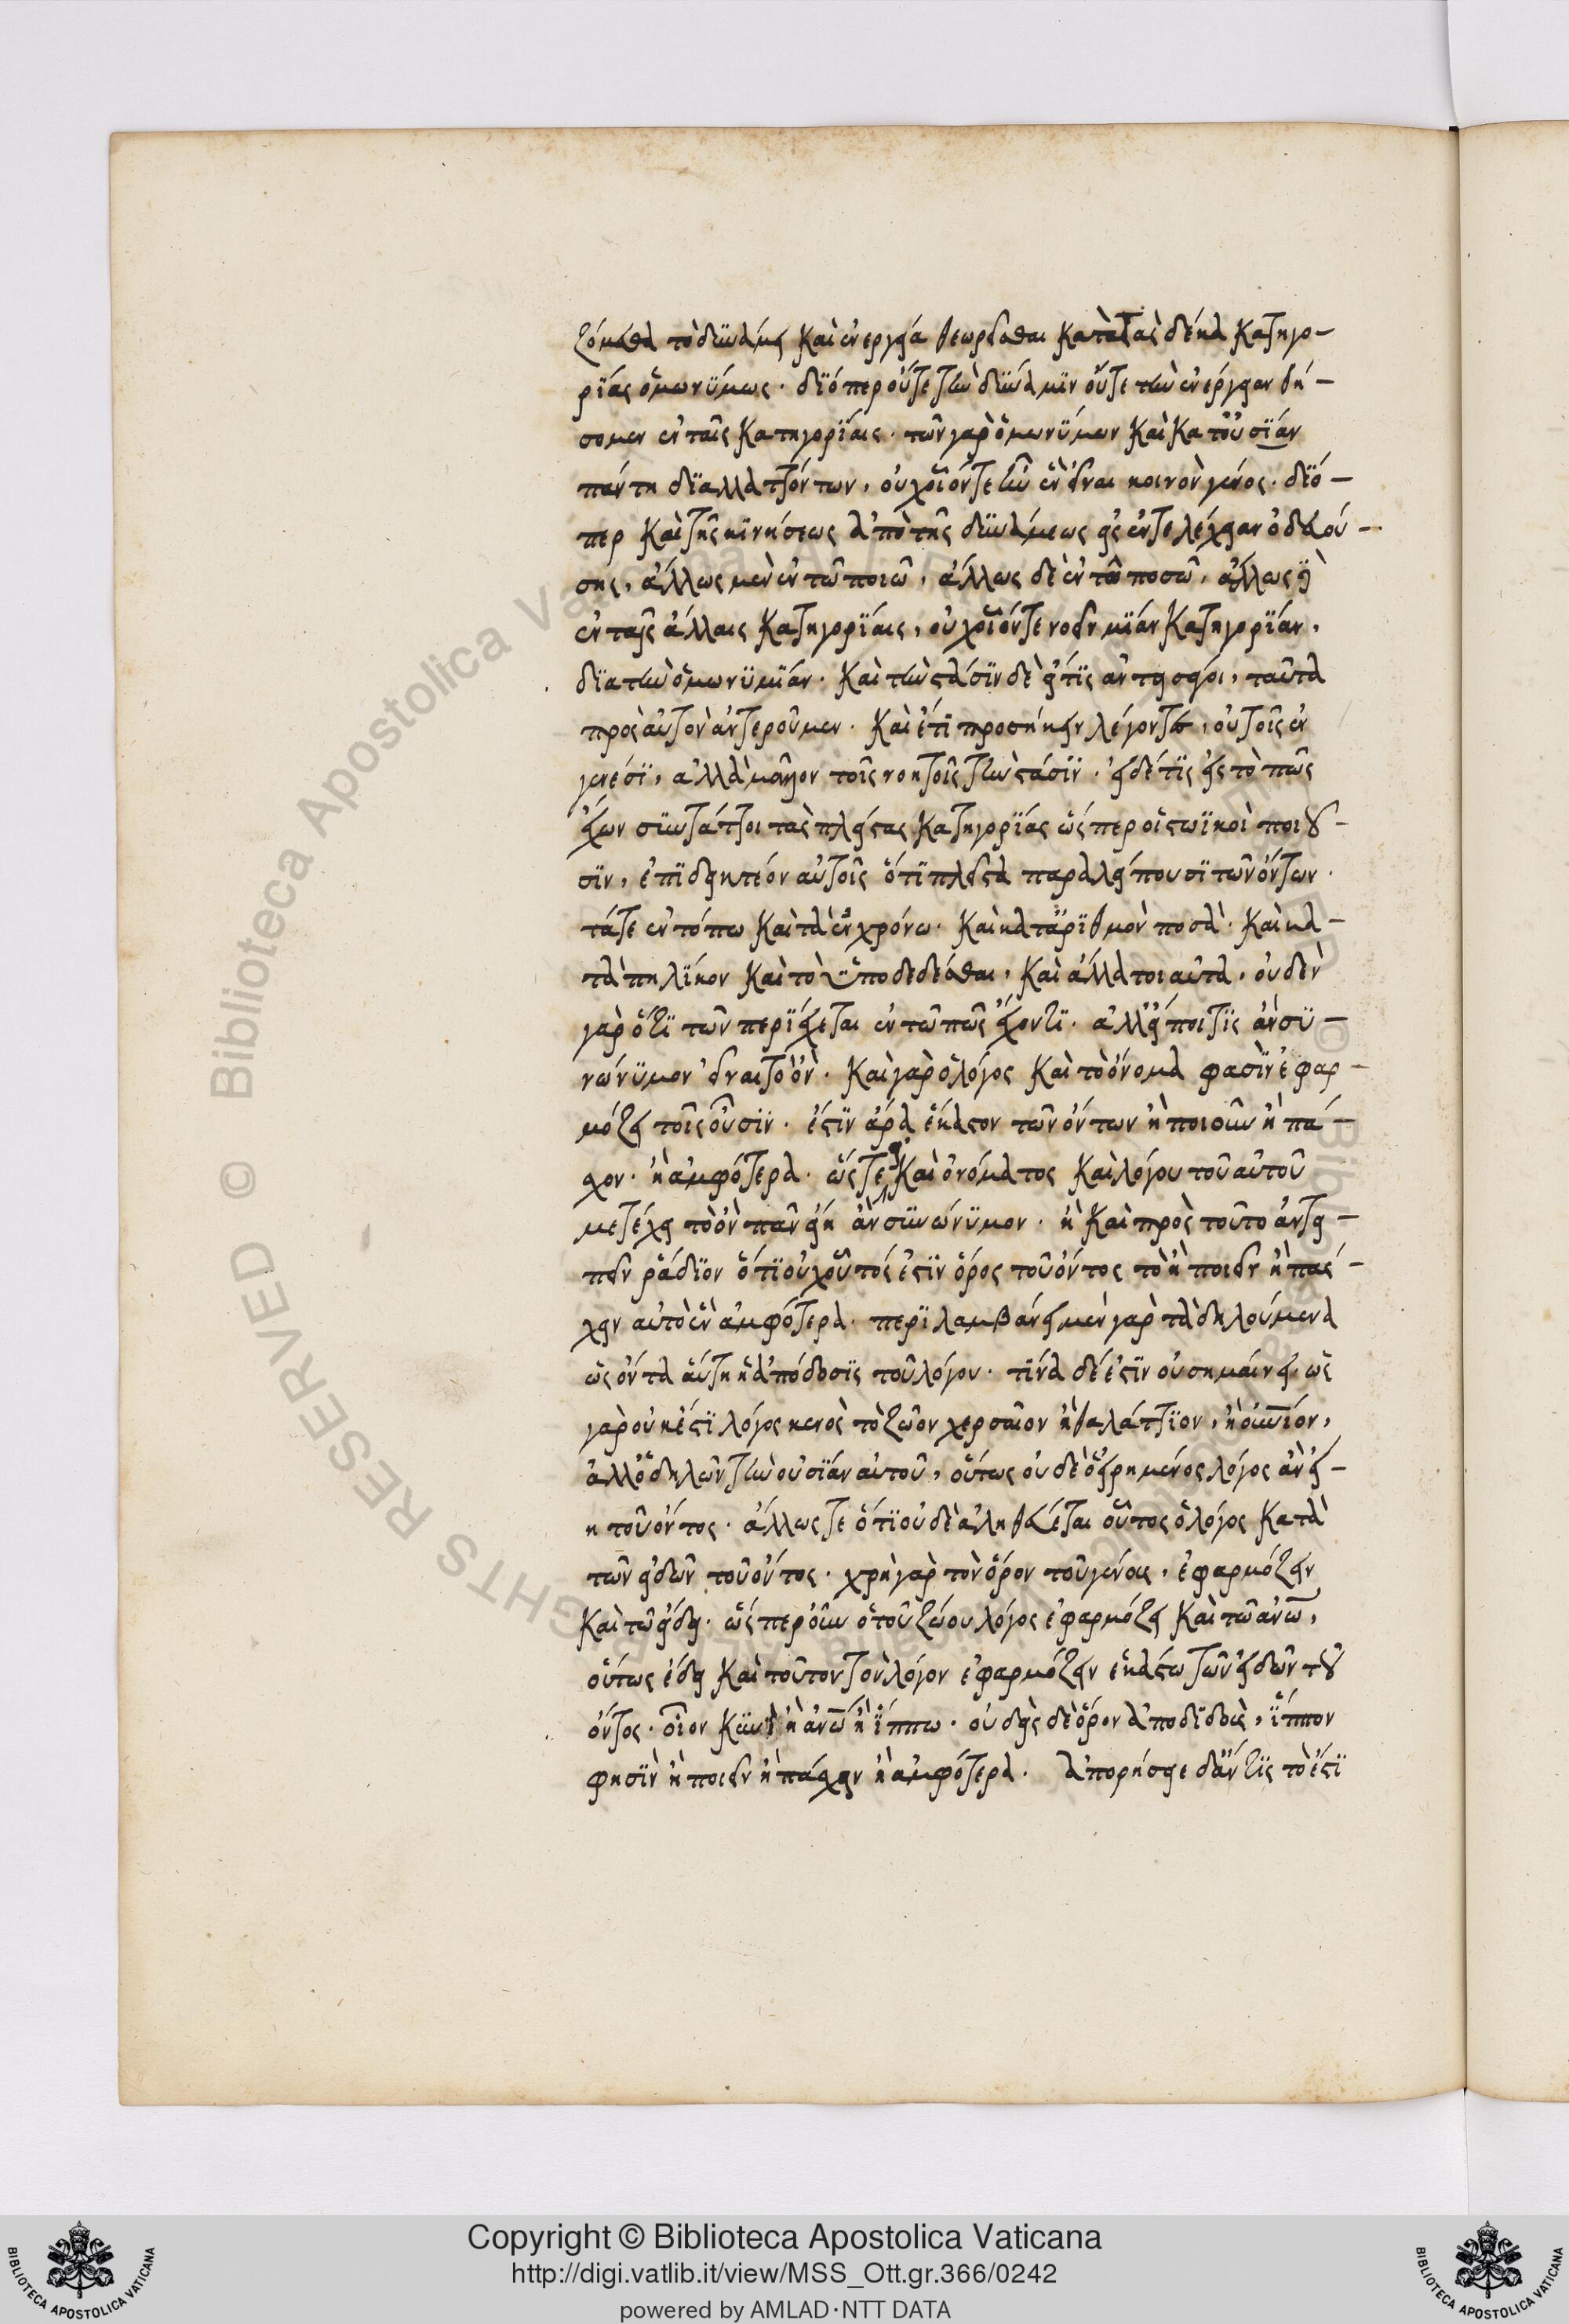 ζόμεθα τὸ δυνάμει καὶ ἐνεργείᾳ θεωρεῖσθαι κατὰ τὰς δέκα κατηγο–
ρίας ὁμωνύμως. διόπερ οὔτε τὴν δύναμιν οὔτε τὴν ἐνέργειαν θή–
σομεν ἐν ταῖς κατηγορίαις. τῶν γὰρ ὁμωνύμων καὶ κατ' οὐσίαν
πάντη διαλλαττόντων, οὐχ οἷόν τε ἦν ἓν εἶναι κοινὸν γένος. διό–
περ καὶ τῆς κινήσεως ἀπὸ τῆς δυνάμεως εἰς ἐντελέχειαν ὁδευού–
σης, ἄλλως μὲν ἐν τῶ ποιῶ, ἄλλως δὲ ἐν τῶ ποσῶ, ἄλλως δὲ
ἐν ταῖς ἄλλαις κατηγορίαις, οὐχ οἷόν τε νοεῖν μίαν κατηγορίαν,
διὰ τὴν ὁμωνυμίαν. καὶ τὴν στάσιν δὲ εἴ τις ἀντεισφέροι, ταῦτα
πρὸς αὐτὸν ἀντεροῦμεν. καὶ ἔτι προσήκειν λέγοντες, οὐ τοῖς ἐν
γενέσει, ἀλλὰ μᾶλλον τοῖς νοητοῖς τὴν στάσιν. εἰ δέ τις εἰς τὸ πῶς
ἔχων συντάττοι τὰς πλείστας κατηγορίας ὥσπερ οἱ στωϊκοὶ ποιοῦ–
σιν, ἐπιδεικτέον αὐτοῖς ὅτι πλεῖστα παραλείπουσι τῶν ὄντων.
τά τε ἐν τόπω καὶ τὰ ἐν χρόνω. καὶ κατ' ἀριθμὸν ποσὰ. καὶ κα–
τὰ πηλίκον καὶ τὸ ὑποδεδέσθαι, καὶ ἄλλα τοιαῦτα. οὐδὲν
γὰρ ὅτι τῶν περιέχεται ἐν τῶ πῶς ἔχοντι. ἀλλ' εἴποι τις ἂν συ–
νώνυμον εἶναι τὸ ὂν. καὶ γὰρ ὁ λόγος καὶ τὸ ὄνομα φασὶν ἐφαρ–
μόζει τοῖς οὖσιν. ἔστιν ἄρα ἕκαστον τῶν ὄντων ἢ ποιοῦν ἢ πά–
σχον. ἢ ἀμφότερα. ὥστε εἰ καὶ ὀνόματος καὶ λόγου τοῦ αὐτοῦ
μετέχει τὸ ὂν πᾶν εἴη ἂν συνώνυμον. ἢ καὶ πρὸς τοῦτο ἀντει–
πεῖν ῥάδιον ὅτι οὐχ οὗτός ἐστιν ὅρος τοῦ ὄντος τὸ ἢ ποιεῖν ἢ πάσ–
χειν αὐτὸ ἓν ἀμφότερα. περιλαμβάνει μὲν γὰρ τὰ δηλούμενα
ὡς ὄντα αὕτη ἡ ἀπόδοσις τοῦ λόγου. τίνα δέ ἐστιν οὐ σημαίνει. ὡς
γὰρ οὐκ ἔστι λόγος κενὸς τὸ ζῶον χερσαῖον ἢ θαλάττιον, ἢ οὐνιον,
ἀλλ' ὁ δηλῶν τὴν οὐσίαν αὐτοῦ, οὕτως οὐδὲ ὁ εἰρημένος λόγος ἂν εἴ–
η τοῦ ὄντος. ἄλλως τε ὅτι οὐδὲ ἀληθεύεται οὗτος ὁ λόγος κατὰ
τῶν εἰδῶν τοῦ ὄντος. χρὴ γὰρ τὸν ὅρον τοῦ γένους, ἐφαρμόζειν
καὶ τῶ εἴδει. ὥσπερ οὖν ὁ τοῦ ζώου λόγος ἐφαρμόζει καὶ τῶ ἀνω̅,
οὕτως ἔδει καὶ τοῦτον τὸν λόγον ἐφαρμόζειν ἑκάστω τῶν εἰδῶν τοῦ
ὄντος. οἷον κυνὶ ἢ ἀνω̅ ἢ ἵππω. οὐδεὶς δὲ ὅρον ἀποδιδοὺς, ἵππον
φησὶν ἢ ποιεῖν ἢ πάσχειν ἢ ἀμφότερα. ἀπορήσειε δ' ἄν τις τὸ ἔστι